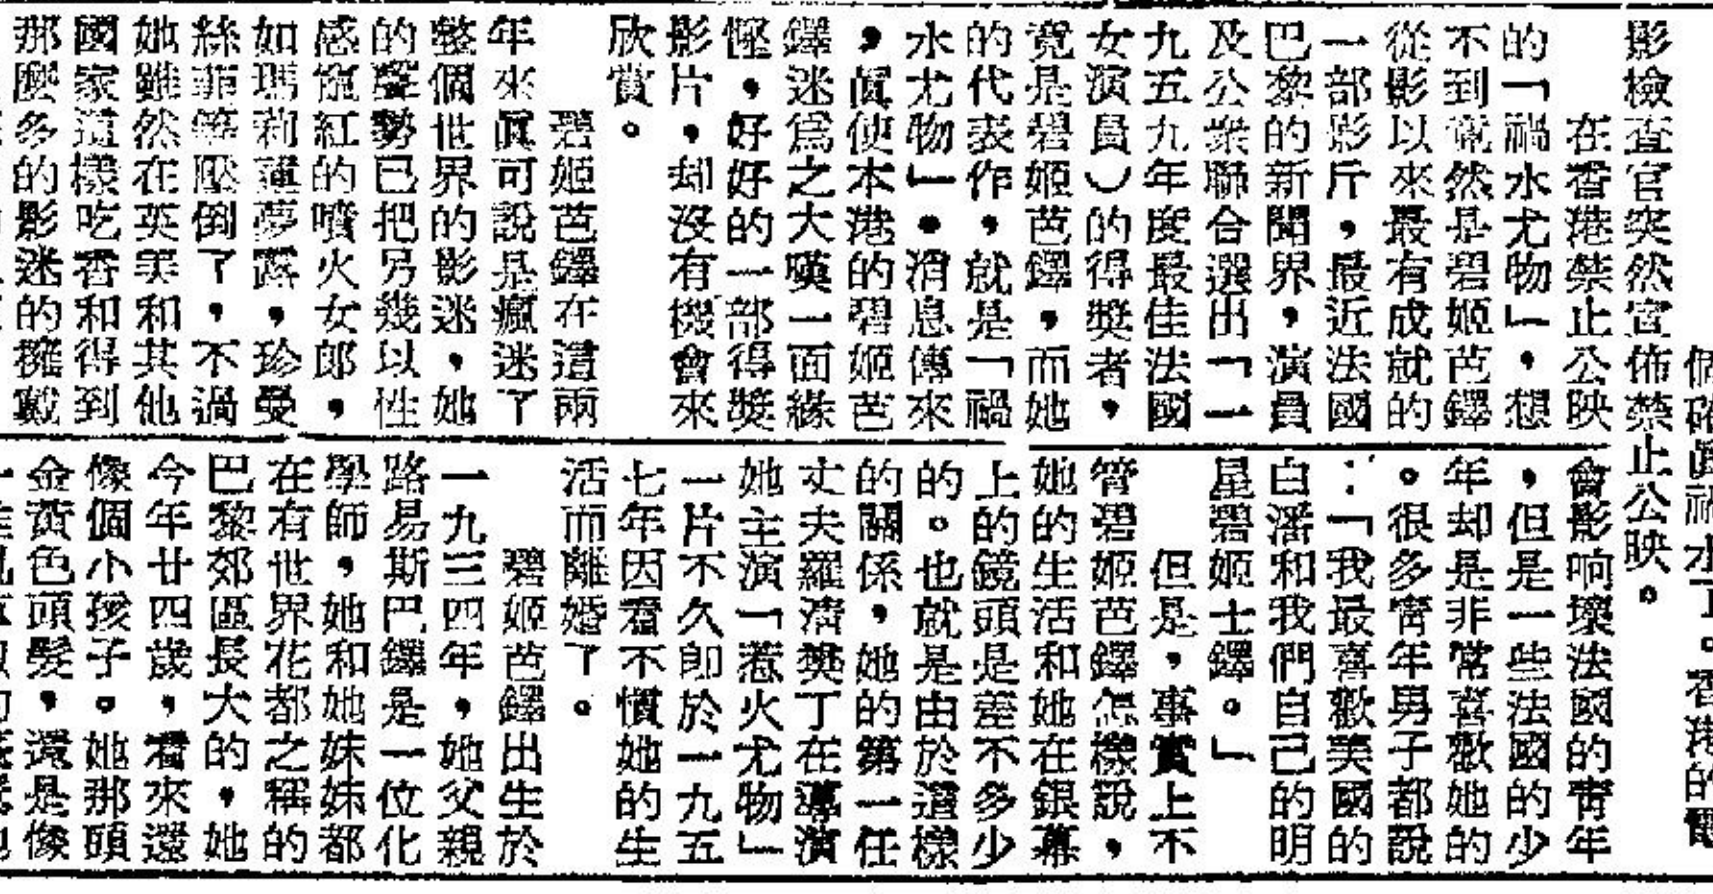 個確眞禍水了。香港的電
影檢查官突然宣佈禁止公映。
在香港禁止公映
的「禍水尤物」,想
不到竟然是碧姬芭鐸
從影以來最有成就的
一部影片,最近法國
巴黎的新聞界,演員
及公衆聯合選出「一
九五九年度最佳法國
女演員)的得獎者,
竟是碧姬芭鐸,而她
的代表作,就是「禍
水尤物」●消息傳來
,眞使本港的碧姬芭
鐸迷爲之大嘆一面緣
慳,好好的一部得獎
影片,却沒有機會來
欣賞。
碧姬芭鐸在這兩
年來眞可說是瘋迷了
整個世界的影迷,她
的聲勢已把另幾以性
感紅的噴火女郎,
如瑪莉蓮夢露,珍曼
絲菲等壓倒了,不過
她雖然在英美和其他
國家這樣吃香和得到
那麼多的影迷的擁戴
會影响壞法國的青年
,但是一些法國的少
年却是非常喜歡她的
。很多青年男子都說
:「我最喜歡美國的
白潘和我們自己的明
星碧姬士鐸。」
但是,事實上不
管碧姬芭鐸怎樣說,
她的生活和她在銀幕
上的鏡頭是差不多少
的。也就是由於這樣
的關係,她的第一任
丈夫羅濟獎丁在導演
她主演「惹火尤物」
一片不久卽於一九五
七年因看不慣她的生
活而離婚了。
碧姬芭鐸出生於
一九三四年,她父親
路易斯巴鐸是一位化
學師,她和她妹妹都
在有世界花都之稱的
巴黎郊區長大的,她
今年廿四歲,看來還
像個小孩子。她那頭
金黃色頭髮,還是像